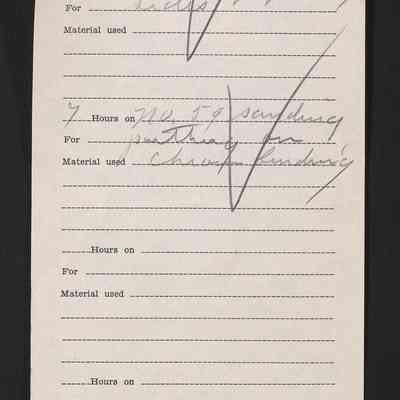 For sides
Material used
7 Hours on No. 59 sanding
For putting on
Material used
Hours on
For
Material used
Hours on